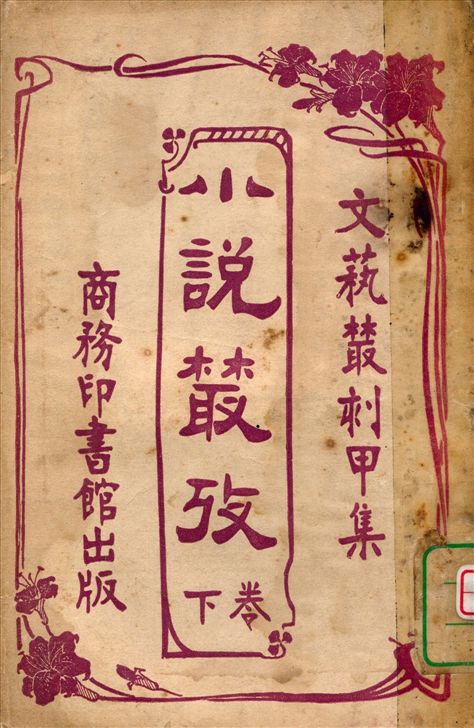 文蓺叢刻甲集
小說叢攷
卷下
商務印書館出版